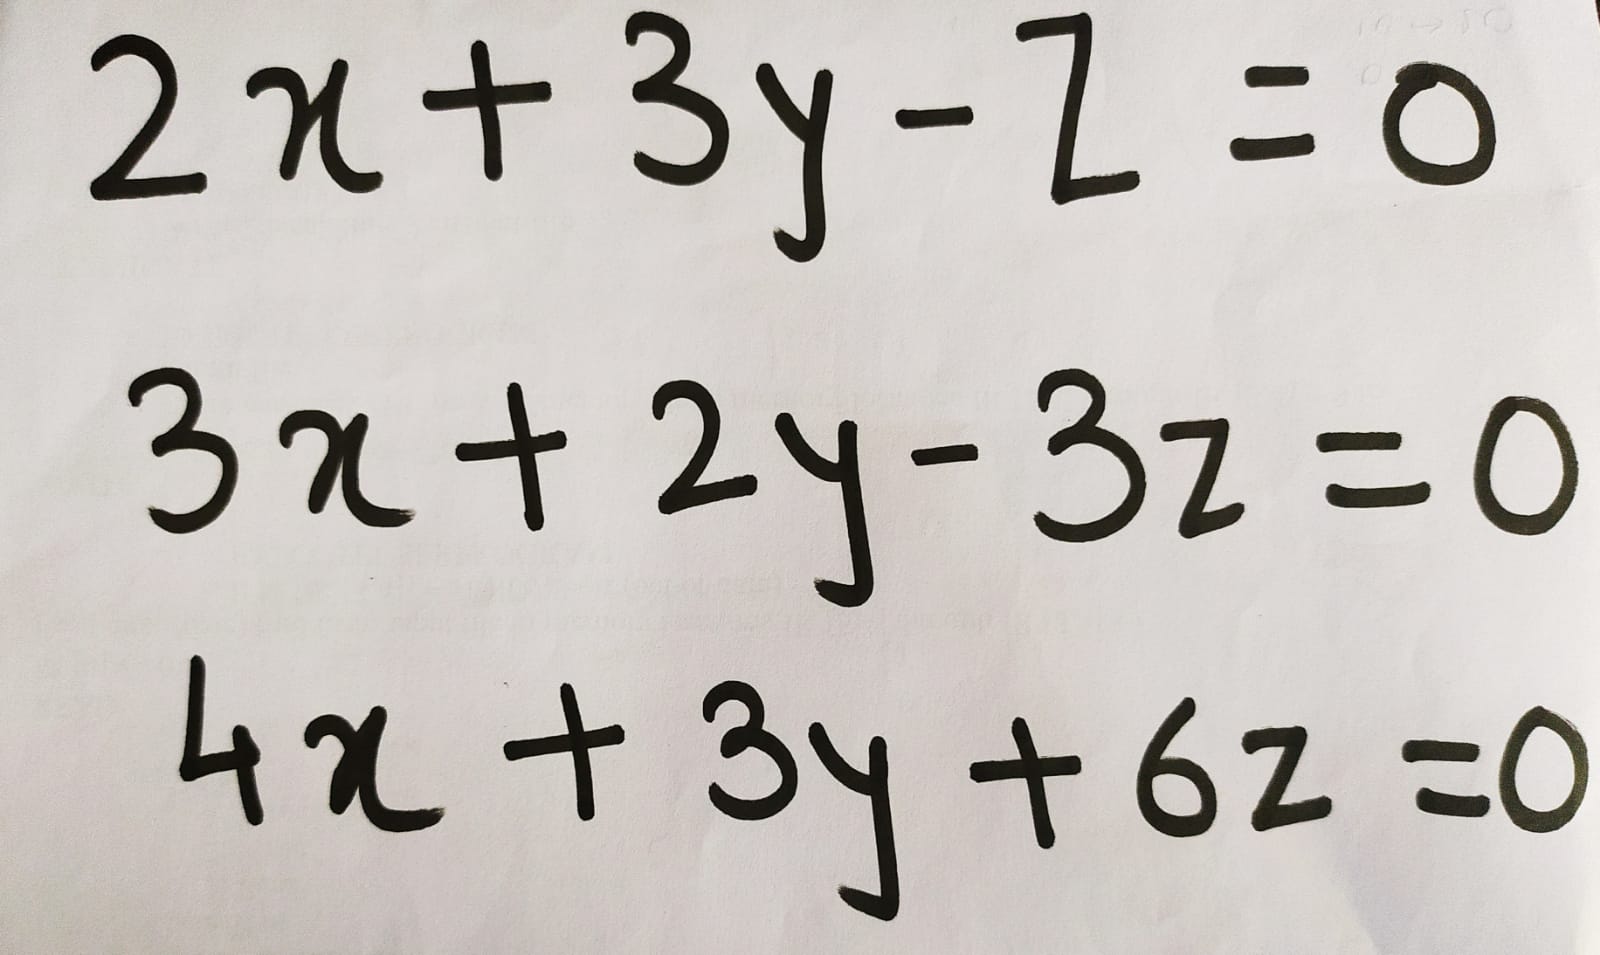 2x + 3y - z = 0
3x + 2y - 3z = 0
4x + 3y + 6z = 0